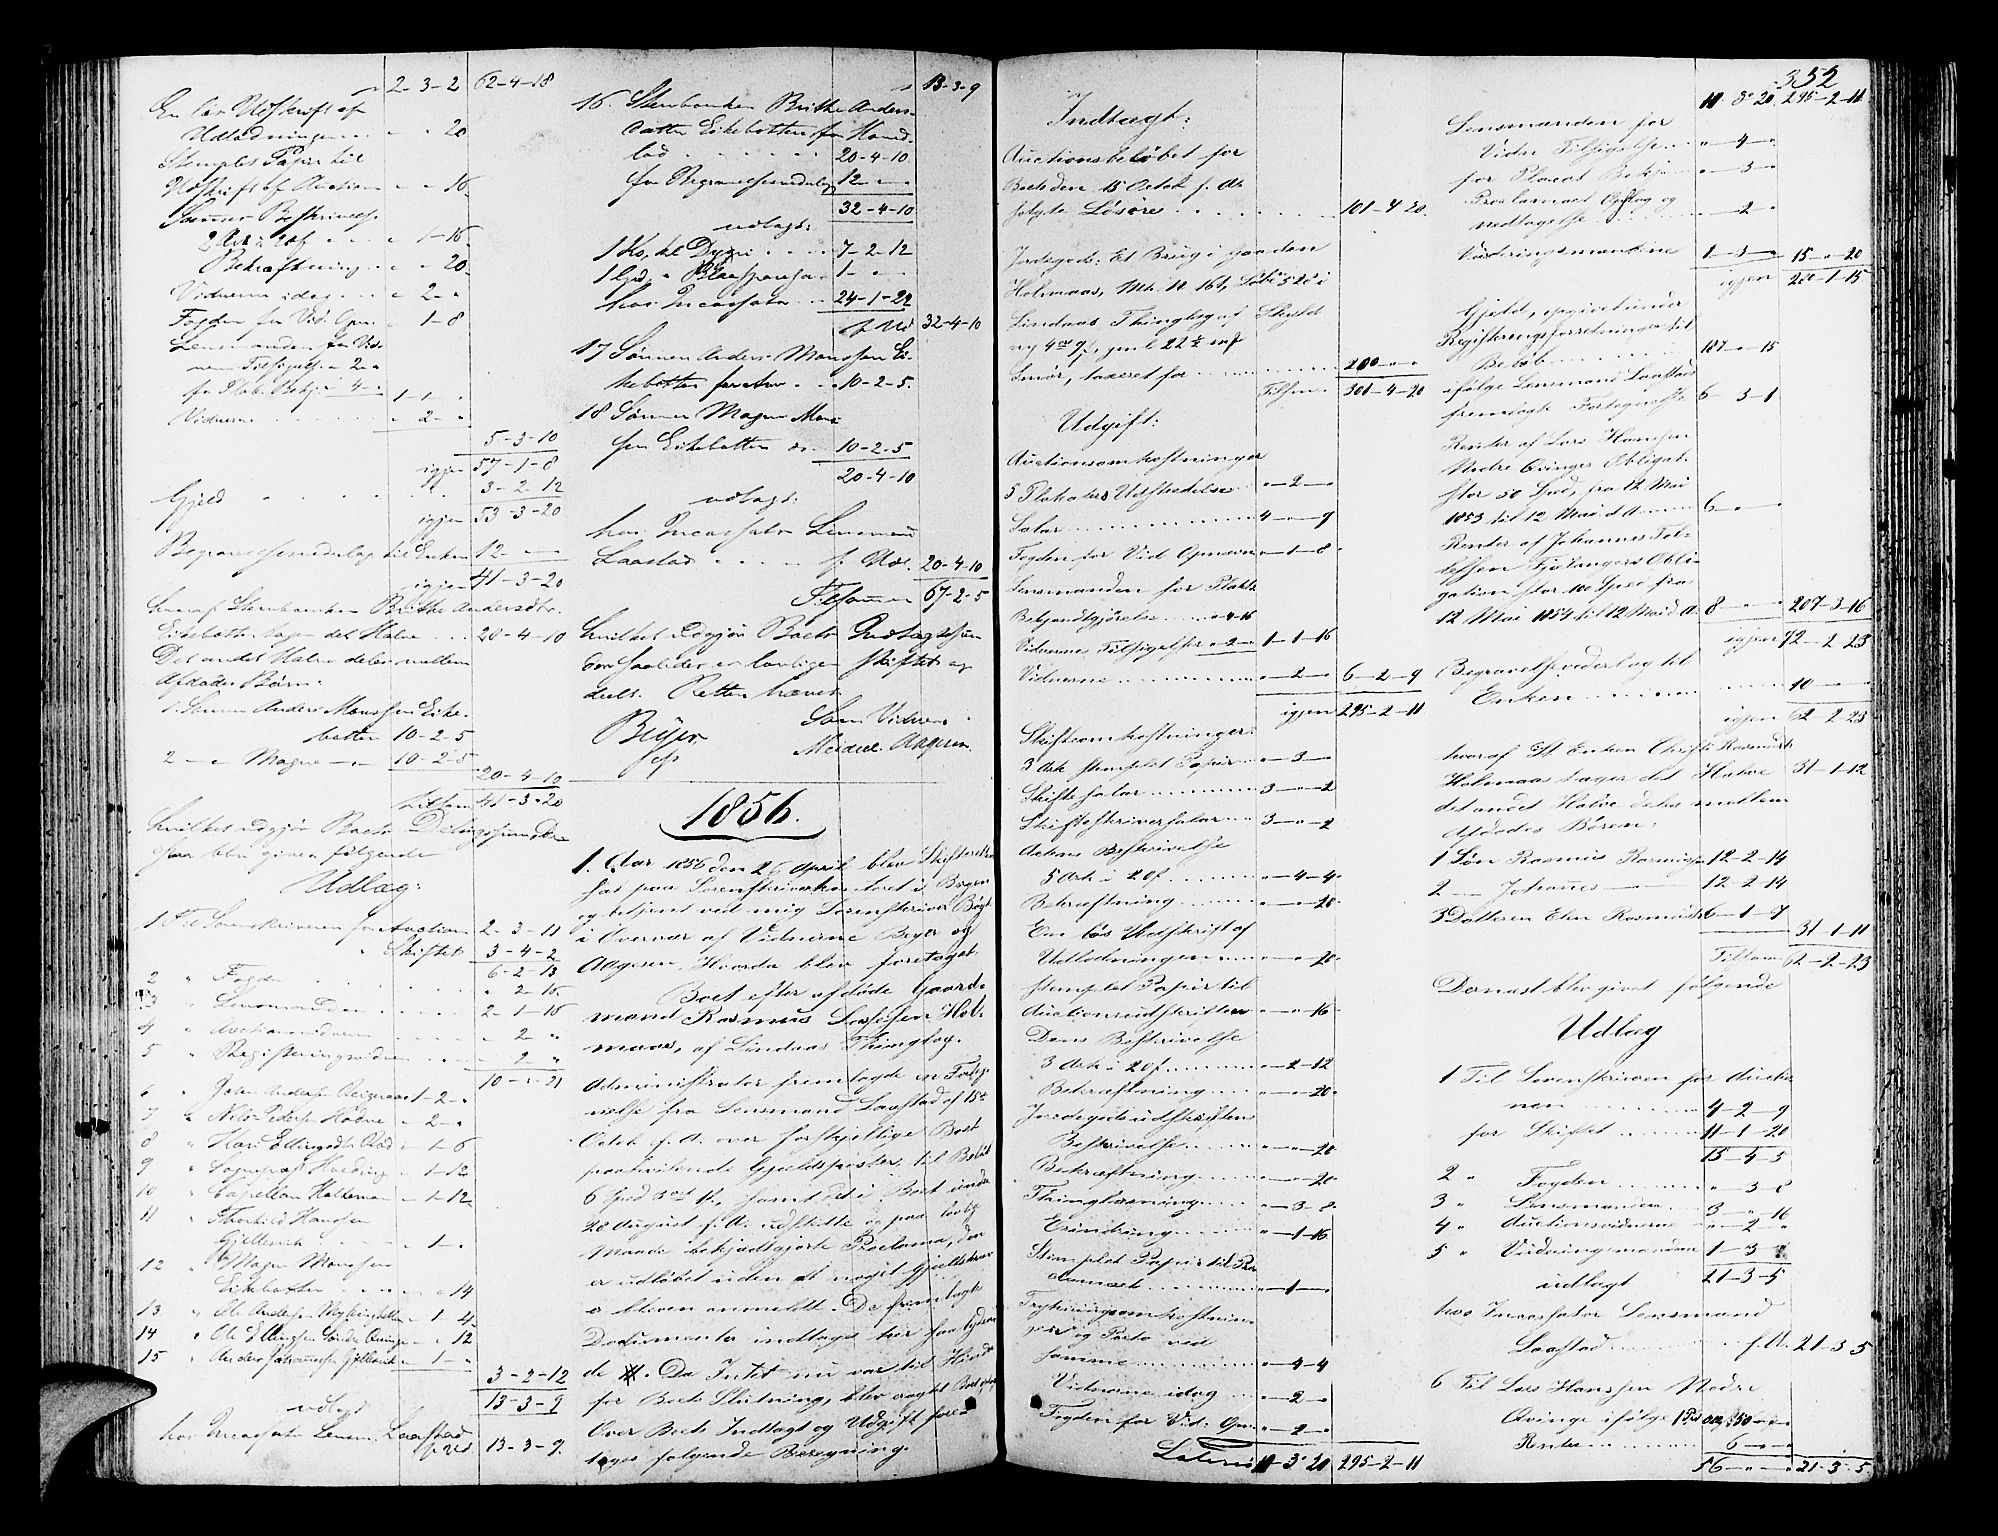 2-3-2 62-4-18
En løs Udskrift af
Udlodningen " " 20
Stemplet Papir til
Udskrift af Auction " " 16
Sammes Beskrivelse
2 Ark à 20 f " 1-16
Bekræftning " " 20
Vidnerne idag " 2 - "
Fogden for Vid. Opn. " 1-8
Lensmanden for Vid-
nern Tilsigelse " 2 "
for Plak. Bekj. " 4 - " 1-1-"
Vidnerne " 2 - "
5-3-10
igjen 57-1-8
Gjeld 3-2-12
igjen 53-3-20
Begravelsesvederlag til Enken 12 - " - "
igjen 41-3-20
hvoraf Stervboenken Brithe Andersdtr.
Eikebotten tager det Halve 20-4-10
Det andet Halve deles mellem
Afdødes Børn:
1. Sønnen Anders Monssen Eike-
botten 10-2-5
2 - " Magne - " 10-2-5
20-4-10
Tilsam 41-3-20
hvilket udgjør Boets Delingssum. Der-
paa blev given følgende
Udlæg:
1 Til Sorenskriveren for Auction 2-3-11
" Skiftet 3-4-2
6-2-13
2 " Fogden " 2-16
3 " Lensmanden 2-1-16
4 " Auctionsvidnern " 2 "
5 " Registeringsvidnern " 2 "
10-"-21
6 " 1-2-"
7 " " 2-"
8 " " 1-6
9 " Sogneprest Harding " 1-12
10 " Capellan Halteman " 1-12
11 " Thorkild Hanssen
Gjellevik " 1-"
12 " Magne Monssen
Eikebotten " " 14
13 " Ole Andersen " 1 4
14 " Ole Ellingsen Nordre Qvinge " " 12
15 " Anders Johannessen Gjellevik " 1-"
3-2-12
13-3-9
udlagt
hos Incassator Lensm. Laastad
f. Ud. 13-3-9
13-3-9
16. Stervboenken Brithe Anders-
datter Eikebotten for Hoved-
lod 20-4-10
for Begravelsesvederlag 12 - " "
32-4-10
udlagt:
1 Ko, kl. Dygn 7-2-12
1 Gjed, 1-"-"
hos Incassator 24-1-22
f. Ud 32-4-10
17 Sønnen Anders Monssen Ei-
kebotten for Arv 10-2-5
18 Sønnen Magne Mons-
sen Eikebotten do 10-2-5
20-4-10
udlagt:
hos Incassator Lensmand
Laastad f. Ud. 20-4-10
Tilsammen 67-2-5
hvilket udgjør Boets Indtægtssum
der saaledes er lovligen skiftet og
deelt. Retten hævet
Som Vidner:
Beyer
Aagesen
1856.
1. Aar 1856 den 26 April blev Skifteret hol-
det paa Sorenskriverkontoret i Bergen
og betjent ved mig Sorenskriver Bøgh
i Overvær af Vidnerne Beyer og
Aagesen. Hvorda blev foretaget
Boet efter afdøde Gaard-
mand Rasmus Larssen Hol-
maas, af Lindaas Thinglag.
Administrator fremlagde en Forteg-
nelse fra Lensmand Laastad af 15de
Octob f. A. over forskjellige Boet
paahvilende Gjeldsposter, til Beløb
6 Spd 3 ort 1 s, samt det i Boet under
28 August f. A. udstedte og paa lovlig
Maade bekjendtgjorte Proclama, der
er udløbet uden at noget Gjeldskrav
er bleven anmeldt. De fremlagte
Documenter indtages her saalyden-
de #. Da Intet nu var til Hinder
for Boets Slutning, blev
Over Boets Indtægt og Udgift fore-
toges følgende Beregning.
352
Indtægt:
Auctionsbeløbet for
Boets den 15 Octob f. A.
solgte Løsøre 101-4-20
Jordegods: Et Brug i Gaarden
Holmaas, Mtr. N 161, Løbe 528 i
Lindaas Thinglag af Skyld
ny 4 ort 9 s, gml 22½ mf
Smør, taxeret for 200-"-"
Tilsam 301-4-20
Udgift:
Auctionsomkostninger
5 Plakaters Udstedelse " - 2 - "
Salar 4 - " - 9
Fogden for Vid. Opnævn " - 1 - 8
Lensmanden for Plakt.
Bekjendtgjørelse " 4-16
Vidnernes Tilsigelse " - 2 - " 1-1-16
Vidnerne " - 2 - " 6-2-9
igjen 295-2-11
Skifteomkostninger:
3 Ark stemplet Papir " - 3 - "
Skiftesalar 3 - " - 2
Skifteskriversalar 3 - " - 2
Actens Beskrivelse
5 Ark à 20 f " - 4 - 4
Bekræftning " - " - 20
En løs Udskrift af
Udlodningen " - " - 20
stemplet Papir til
Auctionsudskriften " - " - 16
Dens Beskrivelse
3 Ark à 20 f " - 2 - 12
Bekræftning " - " - 20
Jordegodsudskriftens
Beskrivelse " - " - 20
Bekræftning " - " - 20
Thinglæsning " - 3 - 8
Erindring " - 1 - 16
Stemplet Papir til Pro-
clamaet " - 1 - "
Trykningsomkostnin-
ger og Porto ved
samme " - 4 - 4
Vidnerne idag " - 2 - "
Fogden for Vid: Opn " - 2 - "
Lateris 11-3-20 295-2-11
11-3-20 295-2-11
Lensmanden for
Vidners Tilsigelse " - 4 - "
for Placat Bekj " - 3 - "
Proclamaets Opslag og
nedtagelse " - 2 - "
Vurderingsmændene 1-3-" 15-"-20
igjen 280-1-15
Gjeld, opgivet under
Registeringsforretningen til
Beløb 187-"-15
ifølge Lensmand Laastads
fremlagte Fortegnelse 6-3-1
Renter af Lars Hanssen
Nedre Qvinges Obligat.
stor 50 Spd, fra 12 Mai
1853 til 12 Mai d. A 6 - " - "
Renter af Johannes Tol-
lefssen Fjøsangers Obli-
gation stor 100 Spd fra
12 Mai 1854 til 12 Mai d. A. 8 - " - " 207-3-16
igjen 72-2-23
Begravelsesvederlag til
Enken 10 - " - "
igjen 62-2-23
hvoraf St. Enken Christi Rasmusdtr
Holmaas tager det Halve 31-1-12
det andet Halve deles mellem
Afdødes Børn:
1 Søn Rasmus Rasmussen 12-2-14
2 — Johannes — 12-2-14
3 Datteren Elen Rasmusdtr 6-1-7
31-1-11
Tilsam 62-2-23
Dernæst blev givet følgende
Udlæg
1 Til Sorenskriveren for Auctio-
nen 4-2-9
for Skiftet 11-1-20
15-4-5
2 " Fogden " - 3 - 8
3 " Lensmanden 3 - " - 16
4 " Auctionsvidnerne " - 2 - "
5 " Vurdringsmændene 1-3-"
udlagt 21-3-5
hos Incassator Lensmand
Laastad f. A. 21-3-5
6 Til Lars Hanssen Nedre
Qvinge ifølge 50-"-"
Renter 6 - " - "
56-"-" 21-3-5